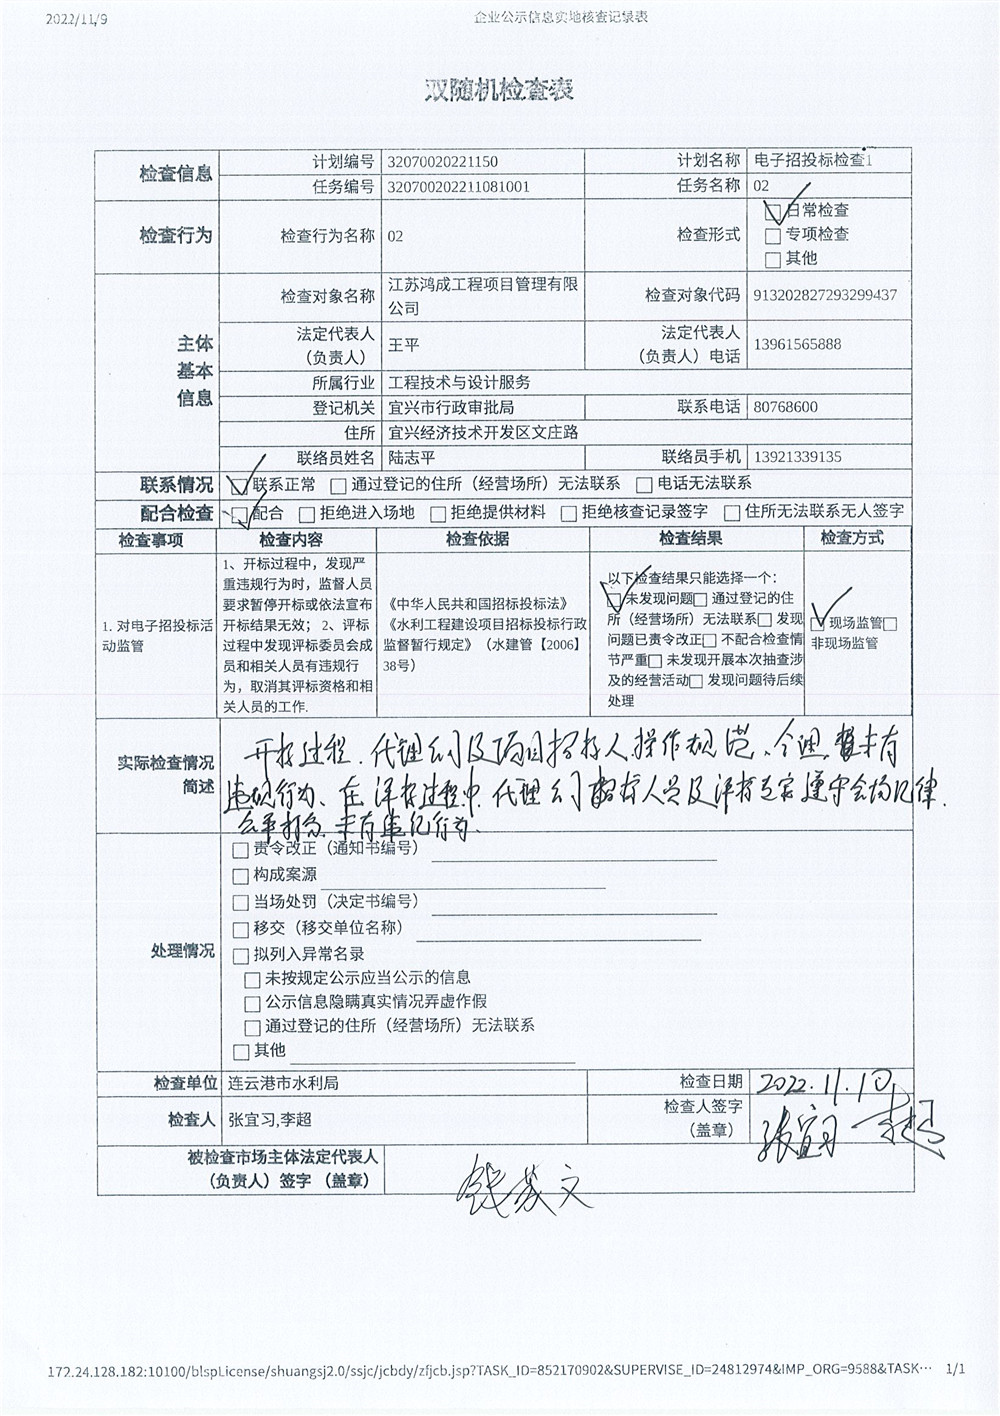 2022/11/9 企业公示信息实地核查记录表
双随机检查表
检查信息 计划编号 32070020221150 计划名称 电子招投标检查1
任务编号 320700202211081001 任务名称 02
检查行为 检查行为名称 02 检查形式 日常检查
专项检查
其他
主体
基本
信息
检查对象名称 江苏鸿成工程项目管理有限
公司
检查对象代码 913202827293299437
法定代表人
（负责人） 王平
法定代表人
（负责人）电话 13961565888
所属行业 工程技术与设计服务
登记机关 宜兴市行政审批局 联系电话 80768600
住所 宜兴经济技术开发区文庄路
联络员姓名 陆志平 联络员手机 13921339135
联系情况 联系正常 通过登记的住所（经营场所）无法联系 电话无法联系
配合检查 配合 拒绝进入场地 拒绝提供材料 拒绝核查记录签字 住所无法联系无人签字
检查事项 检查内容 检查依据 检查结果 检查方式
1. 对电子招投标活
动监管
1、开标过程中，发现严
重违规行为时，监督人员
要求暂停开标或依法宣布
开标结果无效； 2、评标
过程中发现评标委员会成
员和相关人员有违规行
为，取消其评标资格和相
关人员的工作.
《中华人民共和国招标投标法》
《水利工程建设项目招标投标行政
监督暂行规定》（水建管【2006】
38号）
以下检查结果只能选择一个：
未发现问题 通过登记的住
所（经营场所）无法联系 发现
问题已责令改正 不配合检查情
节严重 未发现开展本次抽查涉
及的经营活动 发现问题待后续
处理
现场监管
非现场监管
实际检查情况
简述
开标过程、代理公司及项目招标人操作规范、合理、未有
违规行为、在评标过程中、代理公司 人员及评标专家遵守会场纪律、
公平打分、未有违纪行为、
处理情况
责令改正（通知书编号）
构成案源
当场处罚（决定书编号）
移交（移交单位名称）
拟列入异常名录
未按规定公示应当公示的信息
公示信息隐瞒真实情况弄虚作假
通过登记的住所（经营场所）无法联系
其他
检查单位 连云港市水利局 检查日期 2022.11.10
检查人 张宜习,李超 检查人签字
（盖章） 张宜习 李超
被检查市场主体法定代表人
（负责人）签字 （盖章） 钱 文
172.24.128.182:10100/blspLicense/shuangsj2.0/ssjc/jcbdy/zfjcb.jsp?TASK_ID=852170902&SUPERVISE_ID=24812974&IMP_ORG=9588&TASK… 1/1